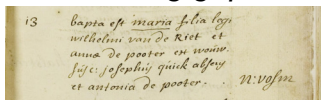 13 bapta est maria filia legi
wilhelmi van de Riet et
annæ de pooter et wouw.
susc: josephus quick absens
et antonia de pooter. n: vosm